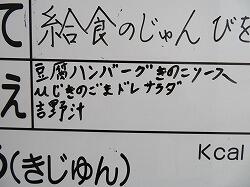 て 給食のじゅんびを
え 豆腐ハンバーグきのこソース
ひじきのごまドレサラダ
吉野汁
(きじゅん) Kcal